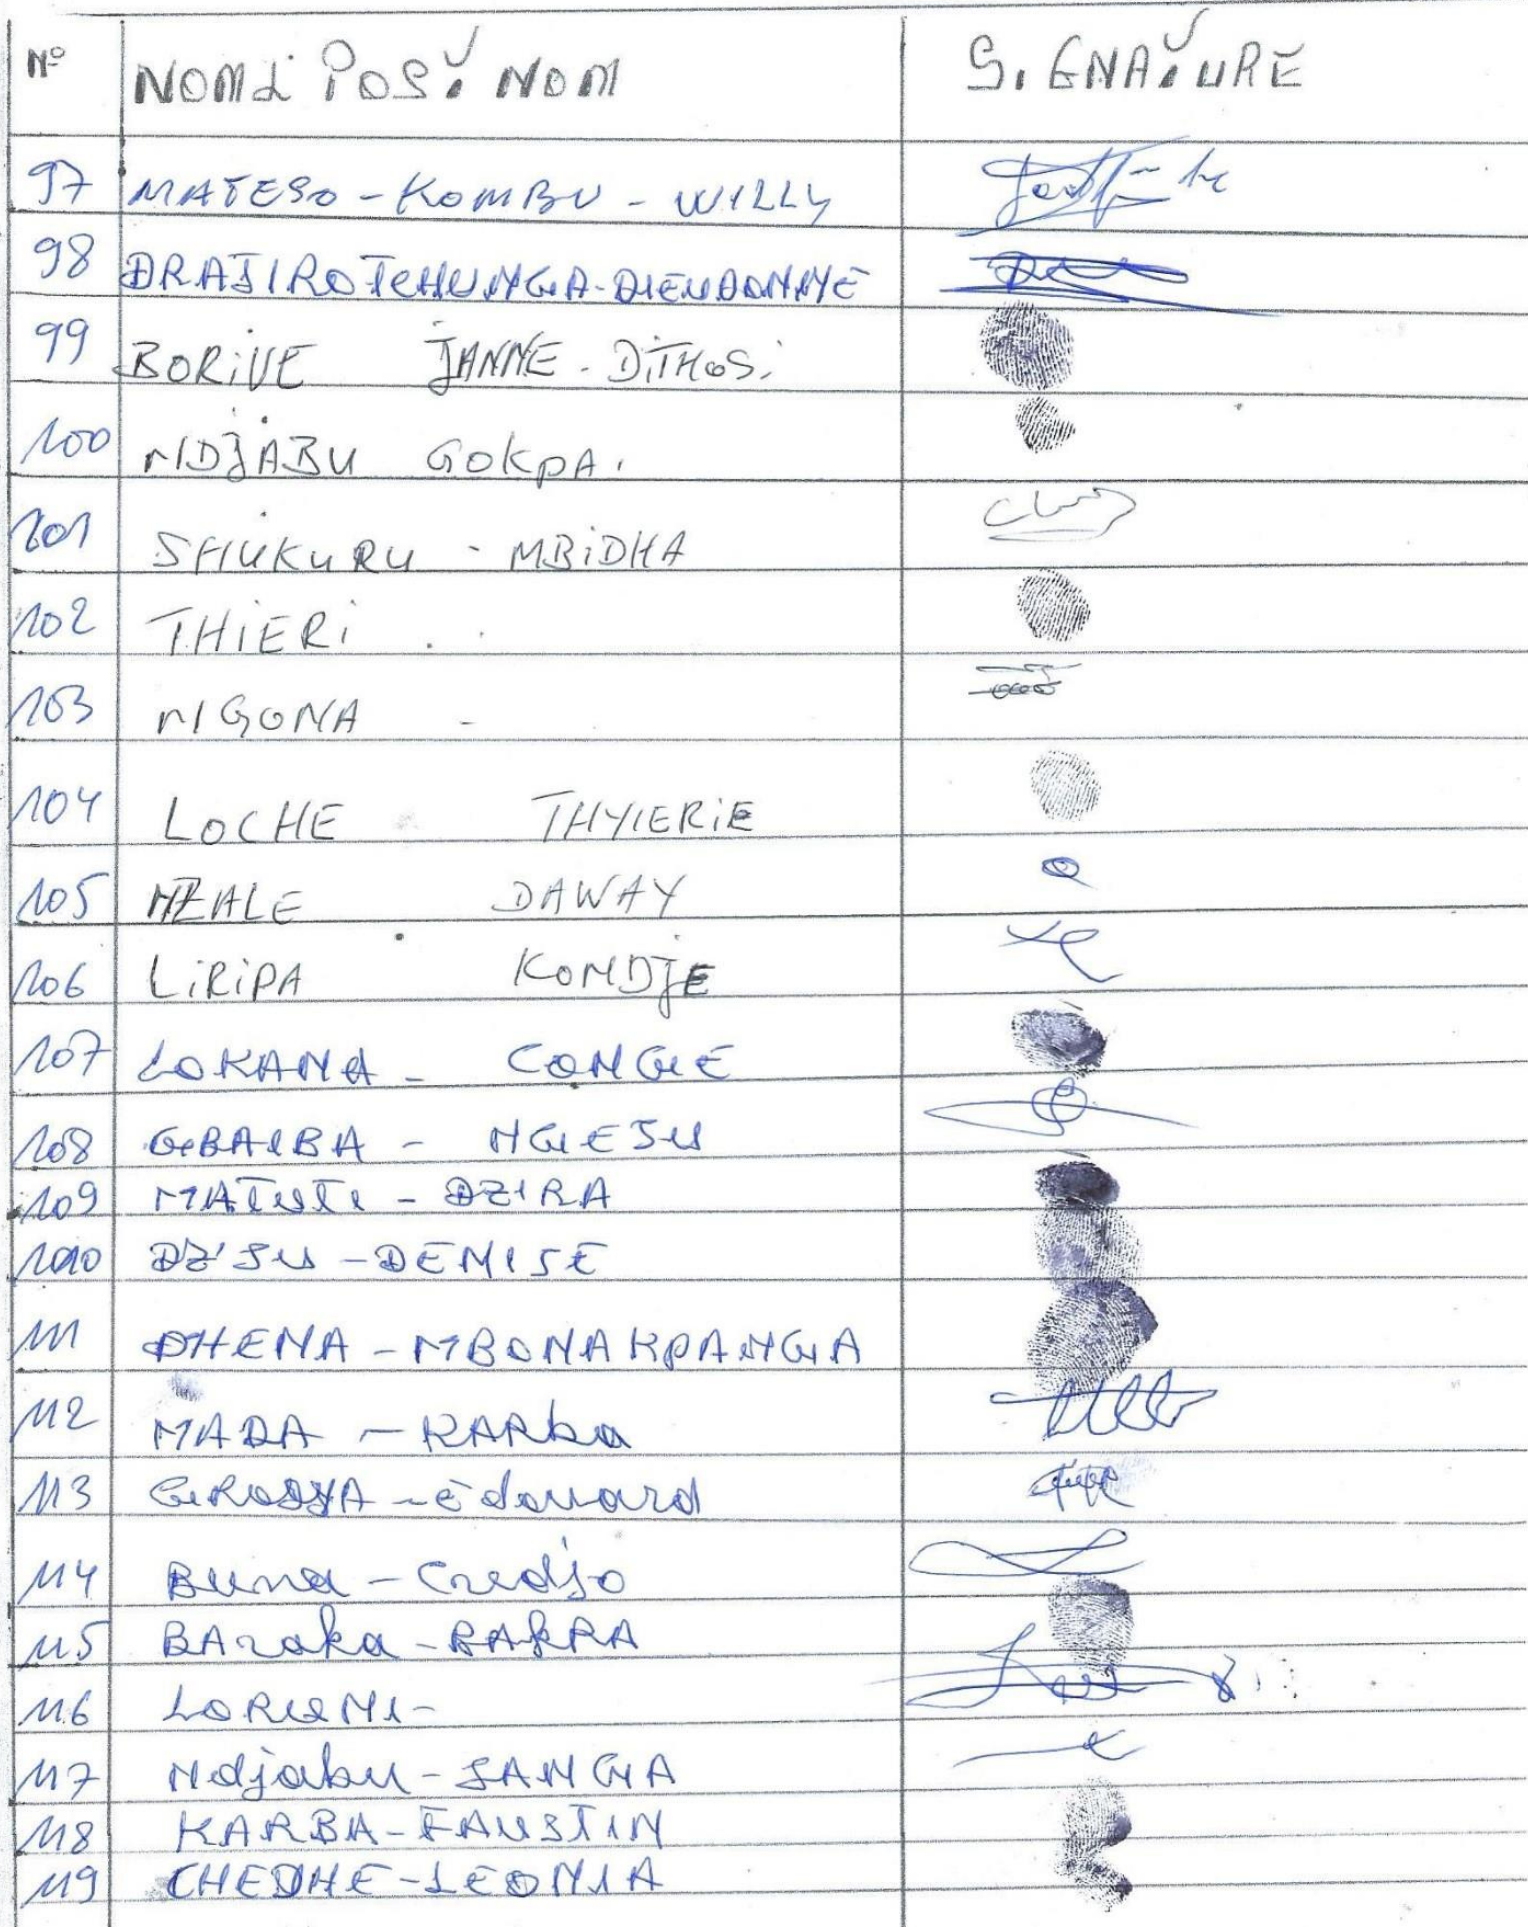 N° NOM & POST. NOM SIGNATURE
97 MATESO - KOMBU - WILLY
98 DRAJIRO TCHUNGA - DIEUDONNE
99 BORIVE JANNE - DITHOSI
100 NDJABU GOKPA.
101 SHUKURU - MBIDHA
102 THIERI
103 NGONA -
104 LOCHE THYIERIE
105 NZALE DAWAY
106 LIRIPA KONDJE
107 LOKANA - CONGE
108 GBAIBA - NGESU
109 MATUTI - DZIRA
1010 DZ'SU - DENISE
111 DHENA - MBONAKPANGA
112 MADA - KARba
113 GRODYA - Edouard
114 Buna - Credjo
115 BAraka - BAKPA
116 LORUNI -
117 Ndjabu - SANGA
118 KARBA - FAUSTIN
119 CHEDHE - LEONIA